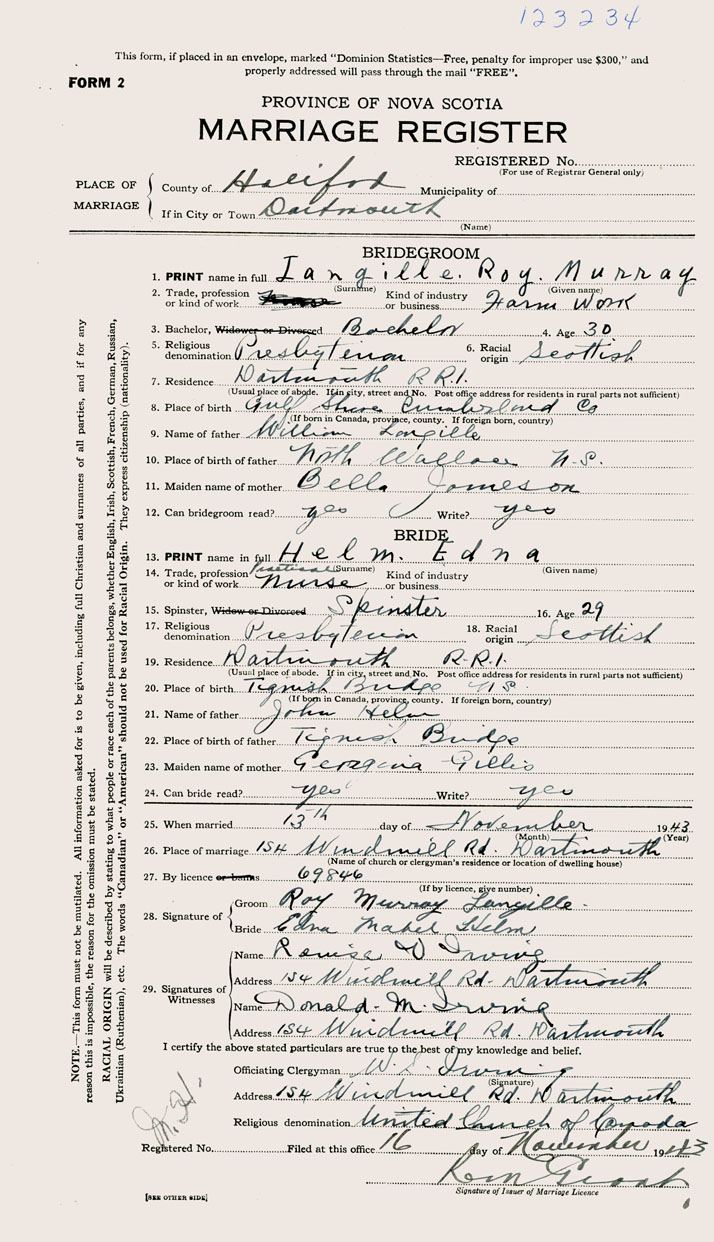 123234
This form, if placed in an envelope, marked "Dominion Statistics—Free, penalty for improper use $300," and
properly addressed will pass through the mail "FREE".
FORM 2
PROVINCE OF NOVA SCOTIA
MARRIAGE REGISTER
REGISTERED No.
(For use of Registrar General only)
PLACE OF MARRIAGE
County of Halifax Municipality of
If in City or Town Dartmouth
(Name)
BRIDEGROOM
1. PRINT name in full Langille. Roy. Murray
(Surname) (Given name)
2. Trade, profession or kind of work Kind of industry or business Farm Work
3. Bachelor, Widower or Divorced Bachelor 4. Age 30
5. Religious denomination Presbyterian 6. Racial origin Scottish
7. Residence Dartmouth R.R.1.
(Usual place of abode. If in city, street and No. Post office address for residents in rural parts not sufficient)
8. Place of birth Gulf Shore Cumberland Co
(If born in Canada, province, county. If foreign born, country)
9. Name of father William Langille
10. Place of birth of father North Wallace N.S.
11. Maiden name of mother Bella Jameson
12. Can bridegroom read? yes Write? yes
BRIDE
13. PRINT name in full Helm. Edna
(Surname) (Given name)
14. Trade, profession or kind of work Practical Nurse Kind of industry or business
15. Spinster, Widow or Divorced Spinster 16. Age 29
17. Religious denomination Presbyterian 18. Racial origin Scottish
19. Residence Dartmouth R.R.1.
(Usual place of abode. If in city, street and No. Post office address for residents in rural parts not sufficient)
20. Place of birth Tignish Bridge N.S.
(If born in Canada, province, county. If foreign born, country)
21. Name of father John Helm
22. Place of birth of father Tignish Bridge
23. Maiden name of mother Georgina Gillis
24. Can bride read? yes Write? yes
25. When married 13th day of November 1943
(Month) (Year)
26. Place of marriage 154 Windmill Rd. Dartmouth
(Name of church or clergyman's residence or location of dwelling house)
27. By licence or banns 69846
(If by licence, give number)
28. Signature of
Groom Roy Murray Langille.
Bride Edna Mabel Helm
29. Signatures of Witnesses
Name Louise D Irving
Address 154 Windmill Rd. Dartmouth
Name Donald. M. Irving
Address 154 Windmill Rd. Dartmouth
I certify the above stated particulars are true to the best of my knowledge and belief.
Officiating Clergyman Irving
(Signature)
Address 154 Windmill Rd. Dartmouth
Religious denomination United Church of Canada
Registered No. Filed at this office 16 day of November 1943
Signature of Issuer of Marriage Licence
[SEE OTHER SIDE]
NOTE.—This form must not be mutilated. All information asked for is to be given, including full Christian and surnames of all parties, and if for any
reason this is impossible, the reason for the omission must be stated.
RACIAL ORIGIN will be described by stating to what people or race each of the parents belongs, whether English, Irish, Scottish, French, German, Russian,
Ukrainian (Ruthenian), etc. The words "Canadian" or "American" should not be used for Racial Origin. They express citizenship (nationality).